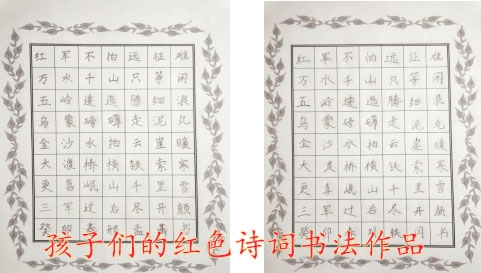 红军不怕远征难
万水千山只等闲
五岭逶迤腾细浪
乌蒙磅礴走泥丸
金沙水拍云崖暖
大渡桥横铁索寒
更喜岷山千里雪
三军过后尽开颜
癸卯春
红军不怕远征难
万水千山只等闲
五岭逶迤腾细浪
乌蒙磅礴走泥丸
金沙水拍云崖暖
大渡桥横铁索寒
更喜岷山千里雪
三军过后尽开颜
癸卯 书
孩子们的红色诗词书法作品